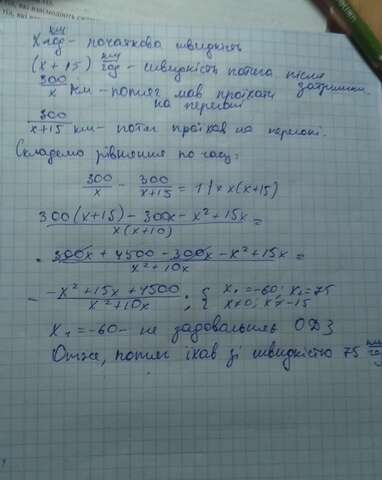 км
X год - початкова швидкість
(x + 15) км/год - швидкість потяга після затримки
300/x км - потяг мав проїхати на перегоні
300/(x+15) км - потяг проїхав на перегоні.
Складемо рівняння по часу:
300/x - 300/(x+15) = 1 | × x(x+15)
(300(x+15) - 300x - x² + 15x)/(x(x+10)) =
= (300x + 4500 - 300x - x² + 15x)/(x² + 10x) =
= (-x² + 15x + 4500)/(x² + 10x) ; { x₁ = -60; x₂ = 75
x ≠ 0; x ≠ -15
X₁ = -60 - не задовольняє ОДЗ
Отже, потяг їхав зі швидкістю 75 км/год